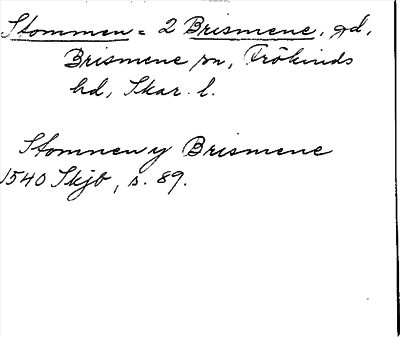 Stommen = 2 Brismene, gd,
Brismene sn, Frökinds
hd, Skar. l.
Stomnen y Brismene
1540 Skjb, s. 89.